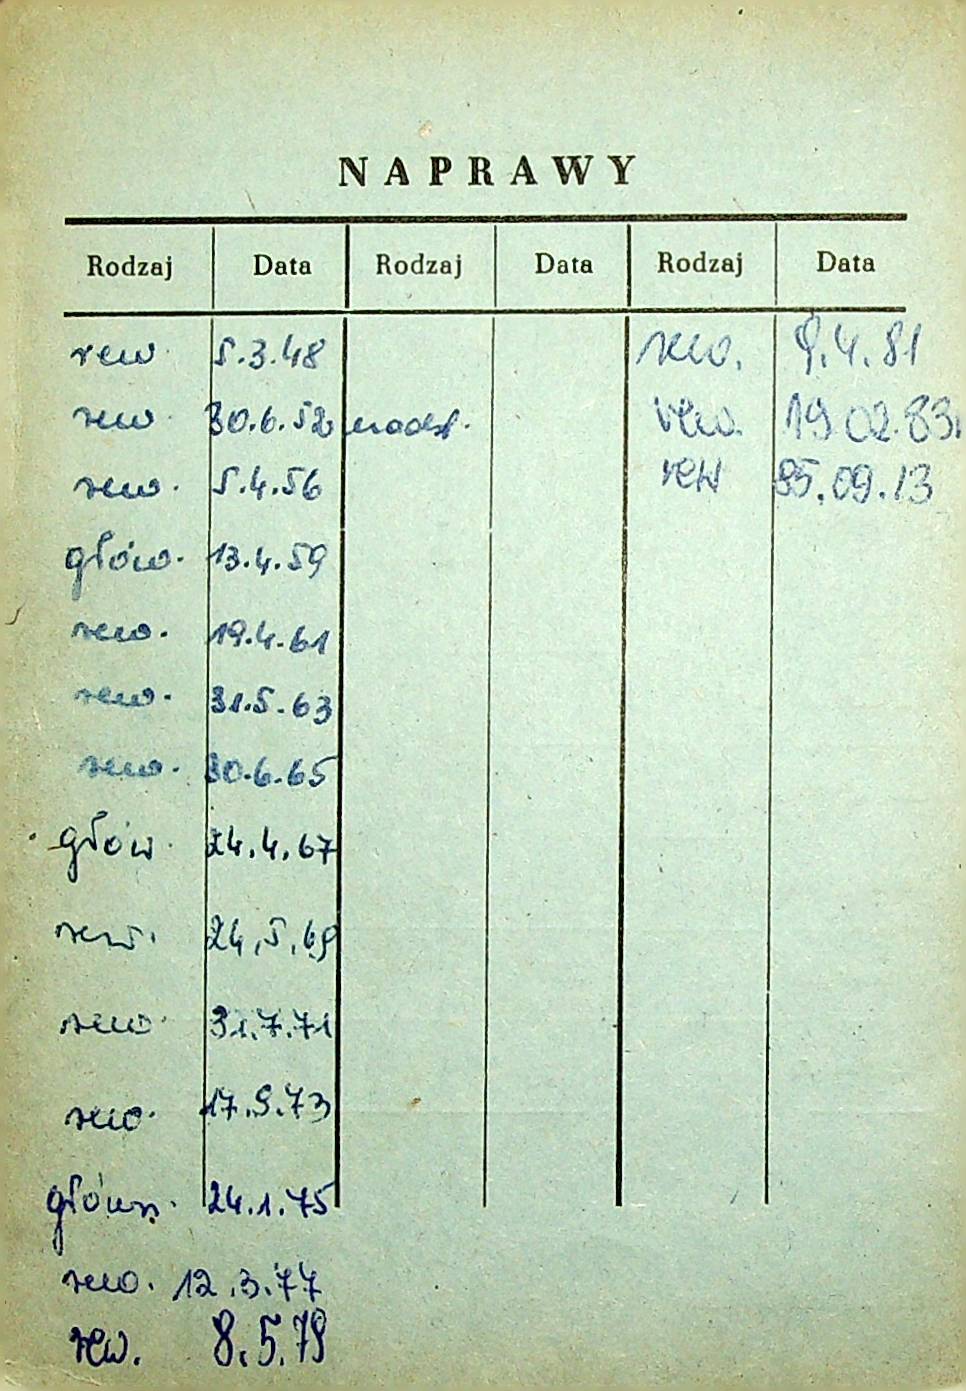 NAPRAWY
Rodzaj Data Rodzaj Data Rodzaj Data
rew. 5.3.48 rew. 9.4.81
rew. 30.6.52 rew. 19.02.83
rew. 5.4.56 rew 85.09.13
głów. 13.4.59
rew. 19.4.61
rew. 31.5.63
rew. 30.6.65
głów. 24.4.67
rew. 24.5.69
rew. 31.7.71
rew. 17.9.73
główn. 24.1.75
rew. 12.3.77
rew. 8.5.79